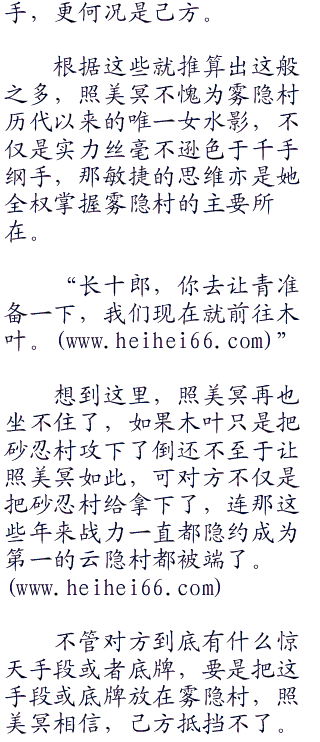 手，更何况是己方。
根据这些就推算出这般
之多，照美冥不愧为雾隐村
历代以来的唯一女水影，不
仅是实力丝毫不逊色于千手
纲手，那敏捷的思维亦是她
全权掌握雾隐村的主要所
在。
“长十郎，你去让青准
备一下，我们现在就前往木
叶。(www.heihei66.com)”
想到这里，照美冥再也
坐不住了，如果木叶只是把
砂忍村攻下了倒还不至于让
照美冥如此，可对方不仅是
把砂忍村给拿下了，连那这
些年来战力一直都隐约成为
第一的云隐村都被端了。
(www.heihei66.com)
不管对方到底有什么惊
天手段或者底牌，要是把这
手段或底牌放在雾隐村，照
美冥相信，己方抵挡不了。